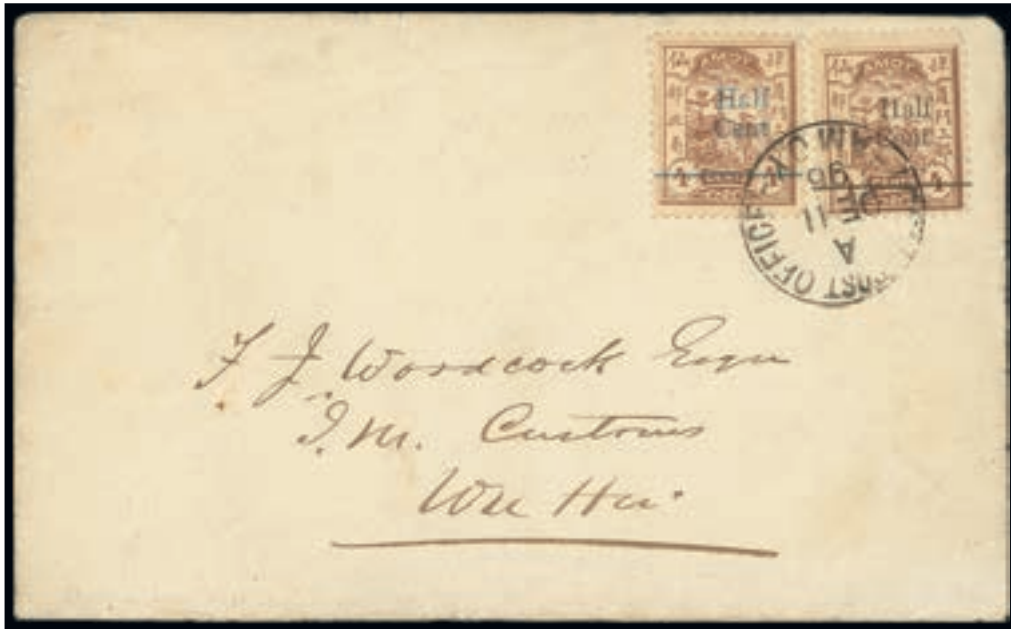 AMOY
Half
Cent
AMOY
Half
Cent
POST OFFICE AMOY
A
11
96
F J. Woodcock Esqre
I. M. Customs
Wu Hu